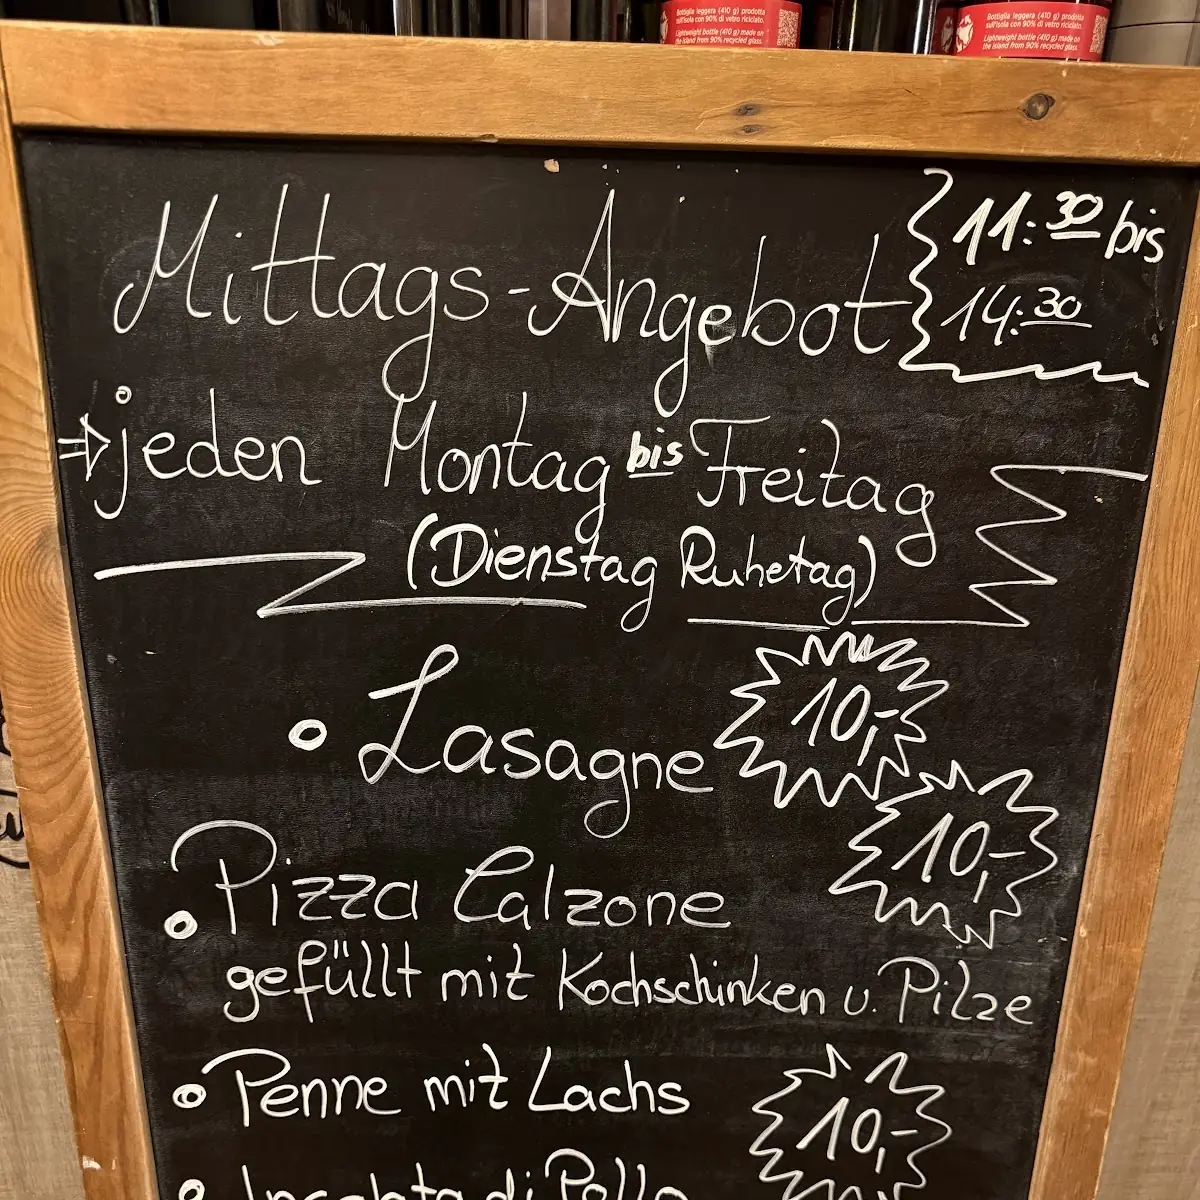 Bottiglia leggera (410 g) prodotta
sull'isola con 90% di vetro riciclato.
Lightweight bottle (410 g) made on
the island from 90% recycled glass.
Bottiglia leggera (410 g) prodotta
sull'isola con 90% di vetro riciclato.
Lightweight bottle (410 g) made on
the island from 90% recycled glass.
Mittags-Angebot
11:30 bis
14:30
⇒ jeden Montag bis Freitag
(Dienstag Ruhetag)
Lasagne 10,-
Pizza Calzone 10,-
gefüllt mit Kochschinken u. Pilze
Penne mit Lachs 10,-
di Pollo